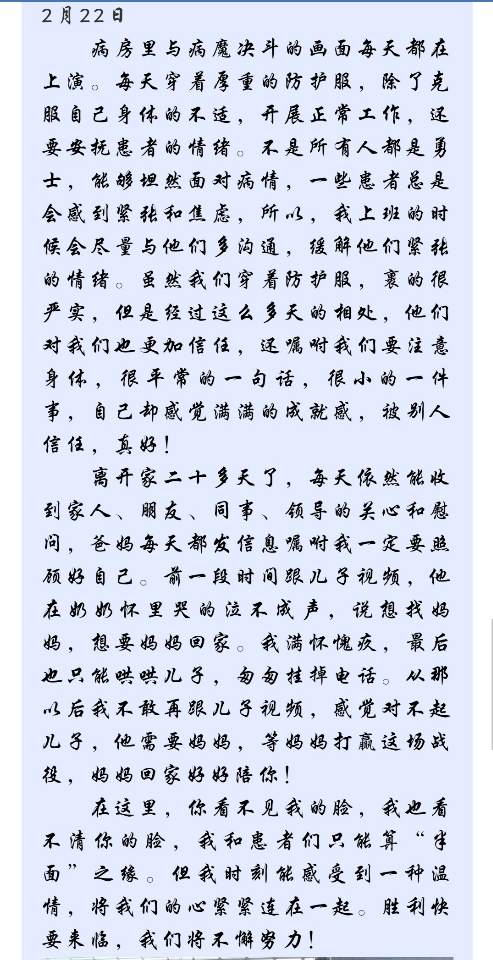 2月22日
病房里与病魔决斗的画面每天都在
上演。每天穿着厚重的防护服，除了克
服自己身体的不适，开展正常工作，还
要安抚患者的情绪。不是所有人都是勇
士，能够坦然面对病情，一些患者总是
会感到紧张和焦虑，所以，我上班的时
候会尽量与他们多沟通，缓解他们紧张
的情绪。虽然我们穿着防护服，裹的很
严实，但是经过这么多天的相处，他们
对我们也更加信任，还嘱咐我们要注意
身体，很平常的一句话，很小的一件
事，自己却感觉满满的成就感，被别人
信任，真好！
离开家二十多天了，每天依然能收
到家人、朋友、同事、领导的关心和慰
问，爸妈每天都发信息嘱咐我一定要照
顾好自己。前一段时间跟儿子视频，他
在奶奶怀里哭的泣不成声，说想找妈
妈，想要妈妈回家。我满怀愧疚，最后
也只能哄哄儿子，匆匆挂掉电话。从那
以后我不敢再跟儿子视频，感觉对不起
儿子，他需要妈妈，等妈妈打赢这场战
役，妈妈回家好好陪你！
在这里，你看不见我的脸，我也看
不清你的脸，我和患者们只能算“半
面”之缘。但我时刻能感受到一种温
情，将我们的心紧紧连在一起。胜利快
要来临，我们将不懈努力！